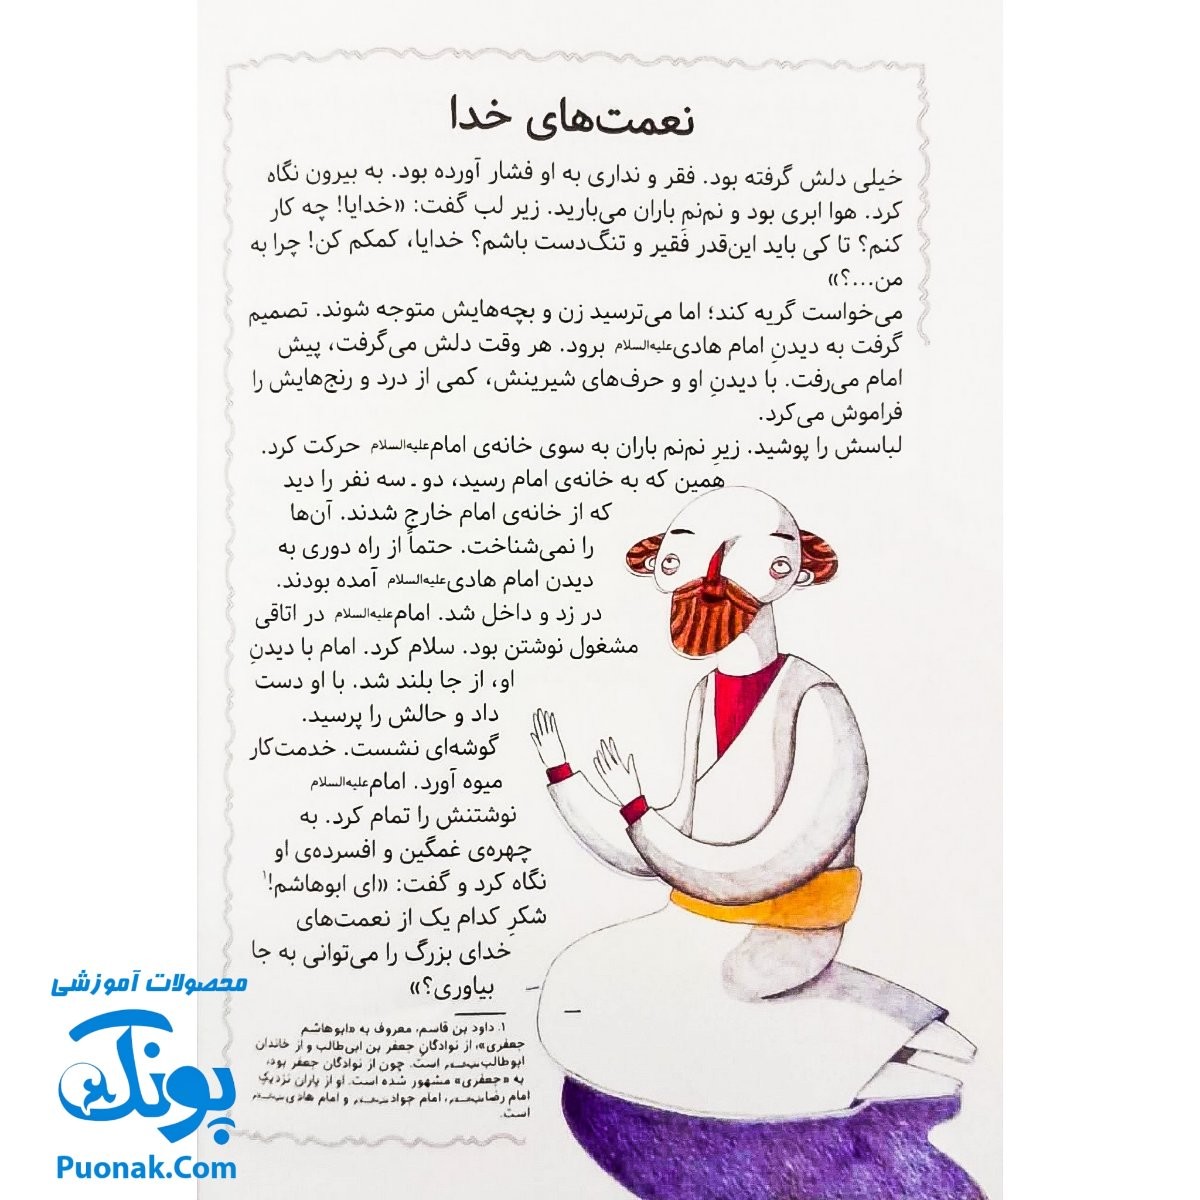 نعمت‌های خدا
خیلی دلش گرفته بود. فقر و نداری به او فشار آورده بود. به بیرون نگاه
کرد. هوا ابری بود و نم‌نمِ باران می‌بارید. زیر لب گفت: «خدایا! چه کار
کنم؟ تا کی باید این‌قدر فقیر و تنگ‌دست باشم؟ خدایا، کمکم کن! چرا به
من...؟»
می‌خواست گریه کند؛ اما می‌ترسید زن و بچه‌هایش متوجه شوند. تصمیم
گرفت به دیدنِ امام هادی علیه‌السلام برود. هر وقت دلش می‌گرفت، پیش
امام می‌رفت. با دیدنِ او و حرف‌های شیرینش، کمی از درد و رنج‌هایش را
فراموش می‌کرد.
لباسش را پوشید. زیرِ نم‌نم باران به سوی خانه‌ی امام علیه‌السلام حرکت کرد.
همین که به خانه‌ی امام رسید، دو ـ سه نفر را دید
که از خانه‌ی امام خارج شدند. آن‌ها
را نمی‌شناخت. حتماً از راه دوری به
دیدن امام هادی علیه‌السلام آمده بودند.
در زد و داخل شد. امام علیه‌السلام در اتاقی
مشغول نوشتن بود. سلام کرد. امام با دیدنِ
او، از جا بلند شد. با او دست
داد و حالش را پرسید.
گوشه‌ای نشست. خدمت‌کار
میوه آورد. امام علیه‌السلام
نوشتنش را تمام کرد. به
چهره‌ی غمگین و افسرده‌ی او
نگاه کرد و گفت: «ای ابوهاشم!۱
شکرِ کدام یک از نعمت‌های
خدای بزرگ را می‌توانی به جا
بیاوری؟»
۱. داود بن قاسم، معروف به «ابوهاشم
جعفری»، از نوادگانِ جعفر بن ابی‌طالب و از خاندان
ابوطالب علیه‌السلام است. چون از نوادگان جعفر بود،
به «جعفری» مشهور شده است. او از یاران نزدیکِ
امام رضا علیه‌السلام، امام جواد علیه‌السلام و امام هادی علیه‌السلام
است.
محصولات آموزشی
پونک
Puonak.Com